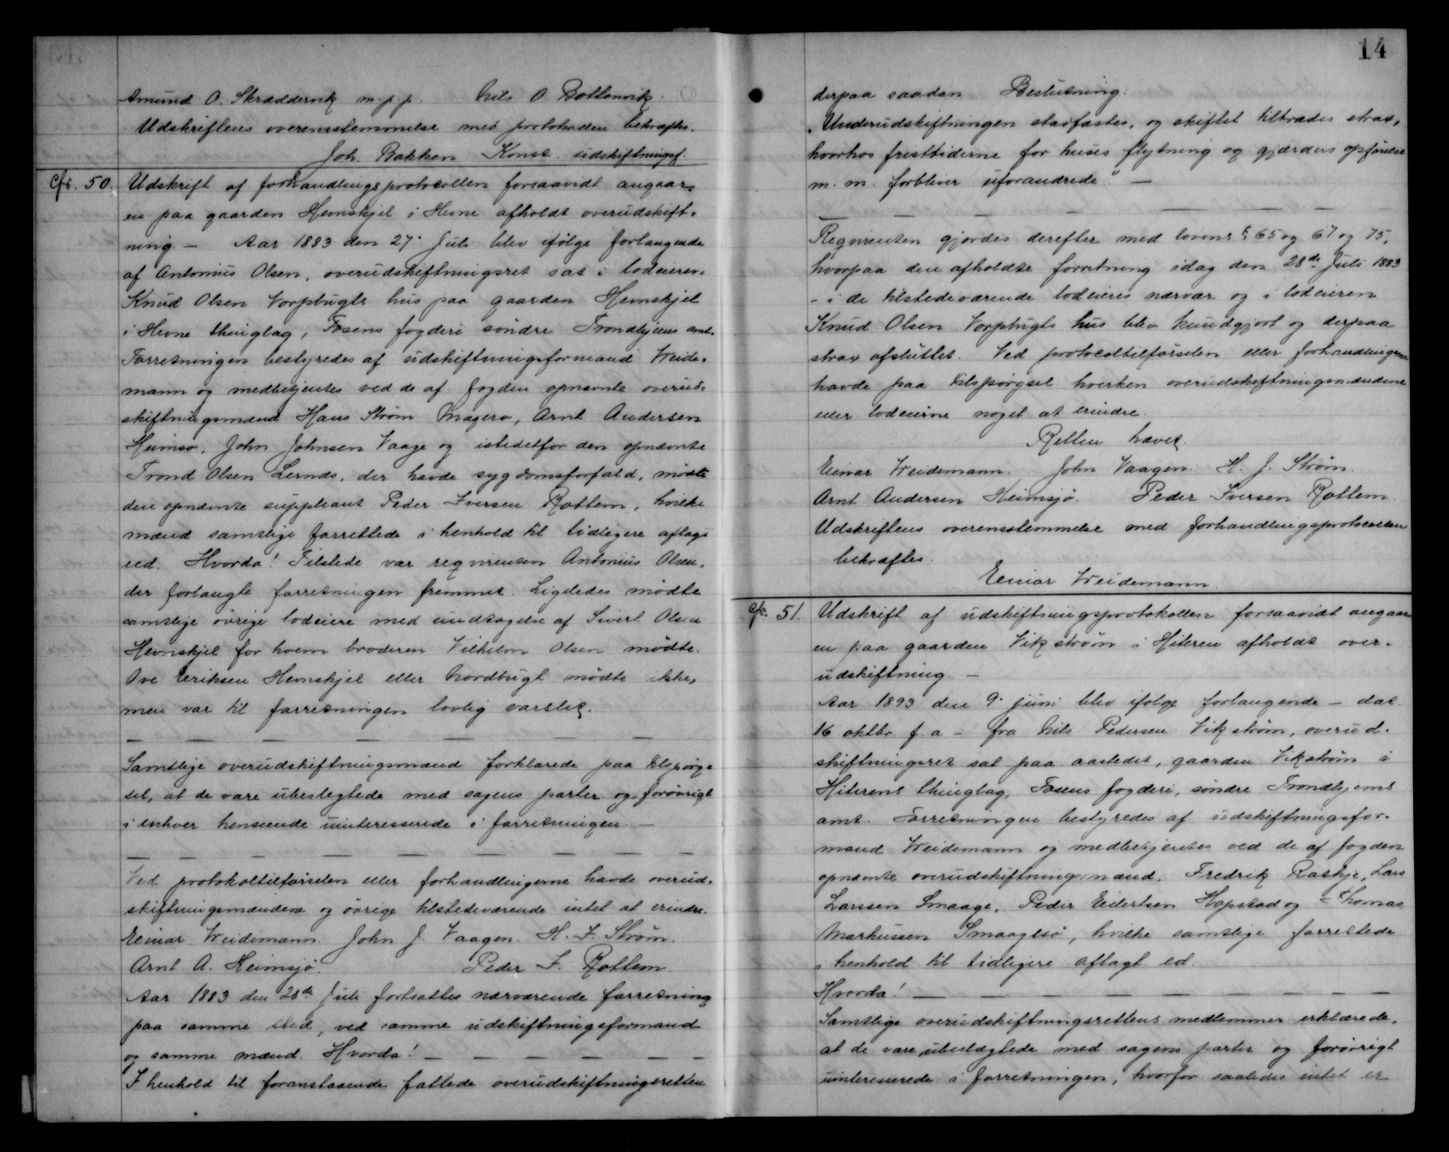 Amund O. Skræddervik m.p.p. Nils O Bottenvik.
Udskriftens overensstemmelse med protokollen bekræftes.
Joh. Bakken Konst. udskiftningsf.
Cfr. 50. Udskrift af forhandlingsprotocollen forsaavidt angaar
en paa gaarden Hemskjel i Hevne afholdt overudskift-
ning — Aar 1883 den 27. Juli blev ifølge forlangende
af Antonius Olsen, overudskiftningsret sat i lodeieren
Knud Olsen Vorpbugts hus paa gaarden Hemskjel
i Hevne thinglag, Fosens fogderi søndre Trondhjems amt.
Forretningen bestyredes af udskiftningsformand Weide-
mann og medbetjentes ved de af fogden opnævnte overud-
skiftningsmænd Hans Strøm Magerø, Arnt Andersen
Heimsø, John Johnsen Vaage og istedetfor den opnævnte
Trond Olsen Lernæs, der havde sygdomsforfald, mødte
den opnævnte suppleant Peder Iversen Rottem, hvilke
mænd samtlige forrettede i henhold til tidligere aflagt
ed. Hvorda! Tilstede var reqvirenten Antonius Olsen,
der forlangte forretningen fremmet. Ligeledes mødte
samtlige øvrige lodeiere med undtagelse af Sivert Olsen
Hemskjel for hvem broderen Vilhelm Olsen mødte.
Ove Eriksen Hemskjel eller Nordbugt mødte ikke,
men var til forretningen lovlig varslet.
Samtlige overudskiftningsmænd forklarede paa tilspørg-
sel, at de vare ubeslegtede med sagens parter og forøvrigt
i enhver henseende uinteresserede i forretningen —
Ved protokoltilførselen eller forhandlingerne havde overud-
skiftningsmændene og øvrige tilstedeværende intet at erindre.
Einar Weidemann. John J. Vaagen. H. J. Strøm.
Arnt A. Heimsjø. Peder I. Rottem.
Aar 1883 den 28de Juli fortsattes nærværende forretning
paa samme sted, ved samme udskiftningsformand
og samme mænd. Hvorda!
I henhold til foranstaaende fattede overudskiftningsretten
14
derpaa saadan Beslutning:
"Underudskiftningen stadfæstes, og skiftet tiltrædes strax,
hvorhos fristtiderne for huses flytning og gjærders opførelse
m. m. forbliver uforandrede." —
Reqvirenten gjordes derefter med lovens § 65 og 67 og 75,
hvorpaa den afholdte forretning idag den 28de Juli 1883
- i de tilstedeværende lodeieres nærvær og i lodeieren
Knud Olsen Vorpbugts hus blev kundgjort og derpaa
strax afsluttet. Ved protocoltilførselen eller forhandlingerne
havde paa tilspørgsel hverken overudskiftningsmændene
eller lodeierne noget at erindre.
Retten hævet
Einar Weidemann. John Vaagen. H. J. Strøm.
Arnt Andersen Heimsjø. Peder Iversen Rottem.
Udskriftens overensstemmelse med forhandlingsprotocollen
bekræftes.
Einar Weidemann.
Cfr. 51. Udskrift af udskiftningsprotokollen forsaavidt angaar
en paa gaarden Vikstrøm i Hiteren afholdt over-
udskiftning —
Aar 1893 den 9. juni blev ifølge forlangende - dat.
16 oktbr f a - fra Nils Pedersen Vikstrøm, overud-
skiftningsret sat paa aastedet, gaarden Vikstrøm i
Hiterens thinglag, Fosens fogderi, søndre Trondhjems
amt. Forretningen bestyredes af udskiftningsfor-
mand Weidemann og medbetjentes ved de af fogden
opnævnte overudskiftningsmænd, Fredrik Raskje, Lars
Larssen Smaage, Peder Eilertsen Hopstad og Thomas
Markussen Smaagesø, hvilke samtlige forrettede
i henhold til tidligere aflagt ed.
Hvorda!
Samtlige overudskiftningsrettens medlemmer erklærede,
at de vare ubeslægtede med sagens parter og forøvrigt
uinteresserede i forretningen, hvorfor saaledes intet er